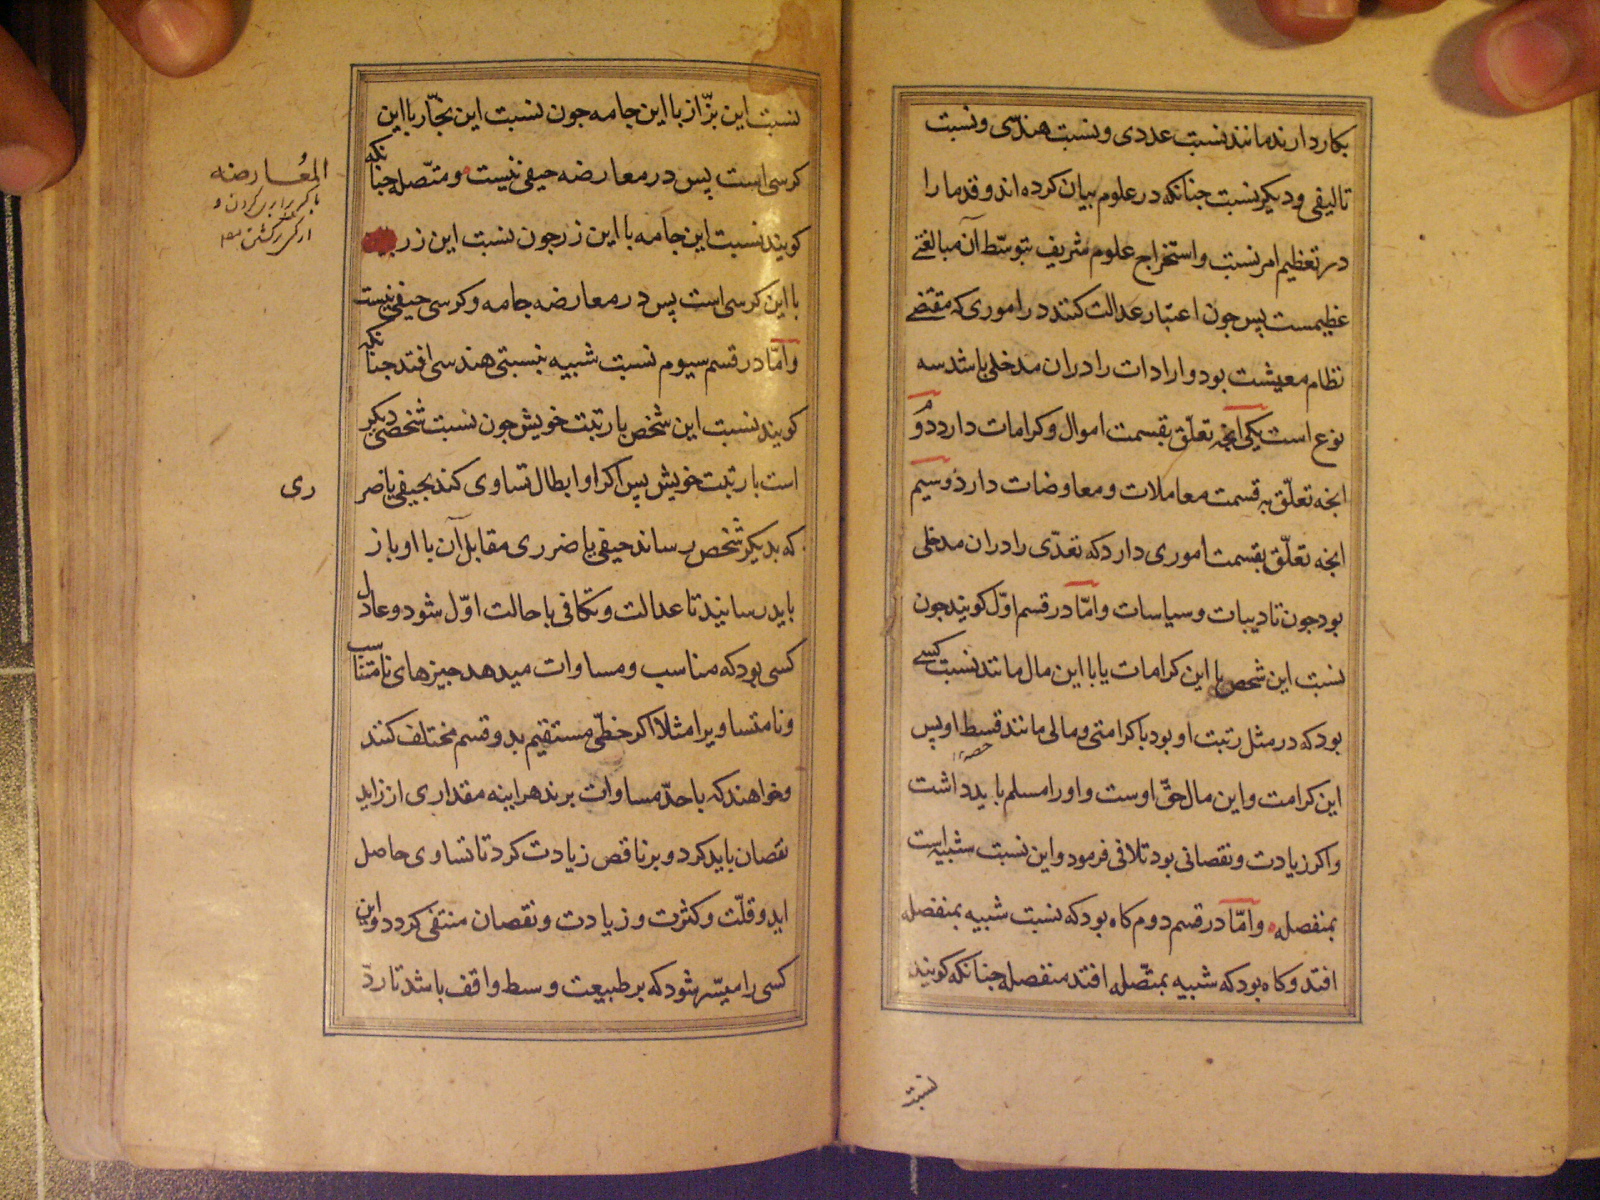 بکار دارند مانند نسبت عددی و نسبت هندسی و نسبت
تالیفی و دیکر نسبت جنانکه در علوم بیان کرده اند و قدما را
در تعظیم امر نسبت و استخراج علوم شریف بتوسّط آن مبالغتی
عظیمست پس جون اعتبار عدالت کنند در اموری که مقتضی
نظام معیشت بود و ارادات را در ان مدخلی باشد سه
نوع است یکی انجه تعلّق بقسمت اموال و کرامات دارد دوم
انجه تعلّق به قسمت معاملات و معاوضات دارد و سیم
انجه تعلّق بقسمت اموری دارد که تعدّی را در ان مدخلی
بود جون تادیبات و سیاسات و امّا در قسم اوّل کویند جون
نسبت این شخص با این کرامات یا با این مال مانند نسبت کسی
بود که در مثل رتبت او بود با کرامتی و مالی مانند قسط او پس
حصه
این کرامت و این مال حقّ اوست و او را مسلم باید داشت
و اکر زیادت و نقصانی بود تلافی فرمود و این نسبت شبیه است
بمنفصله و امّا در قسم دوم کاه بود که نسبت شبیه بمنفصله
افتد و کاه بود که شبیه بمتّصله افتد منفصله جنانکه کویند
نسبت
نسبت این بزّاز با این جامه جون نسبت این نجّار با این
کرسی است پس در معارضه حیفی نیست و متّصله جنانکه
کویند نسبت این جامه با این زر جون نسبت این زر
با این کرسی است پس در معارضه جامه و کرسی حیفی نیست
و امّا در قسم سیوم نسبت شبیه بنسبتی هندسی افتد جنانکه
کویند نسبت این شخص با رتبت خویش جون نسبت شخصی دیکر
است با رتبت خویش پس اکر او ابطال تساوی کند بحیفی یا ضر
که بدیکر شخص رساند حیفی یا ضرری مقابل آن با او باز
باید رسانید تا عدالت و تکافی با حالت اوّل شود و عادل
کسی بود که مناسب و مساوات میدهد جیزهای نامتناسب
و نامتساویرا مثلا اکر خطّی مستقیم بدو قسم مختلف کنند
و خواهند که با حدّ مساوات برند هراینه مقداری از زاید
نقصان باید کرد و بر ناقص زیادت کرد تا تساوی حاصل
اید و قلّت و کثرت و زیادت و نقصان منتفی کردد و این
کسی را میسّر شود که بر طبیعت وسط واقف باشد تا ردّ
المُعارضه
با کسی برابری کردن و
ری